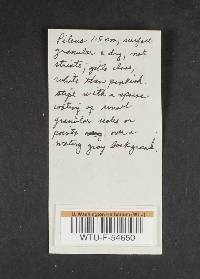 Pileus 1-5 cm, surface
granular & dry, not
striate; gills close,
white then pinkish.
stipe with a sparse
coating of small
granular scales or
points over a
watery gray background.
U. Washington Herbarium (WTU)
WTU-F-54650